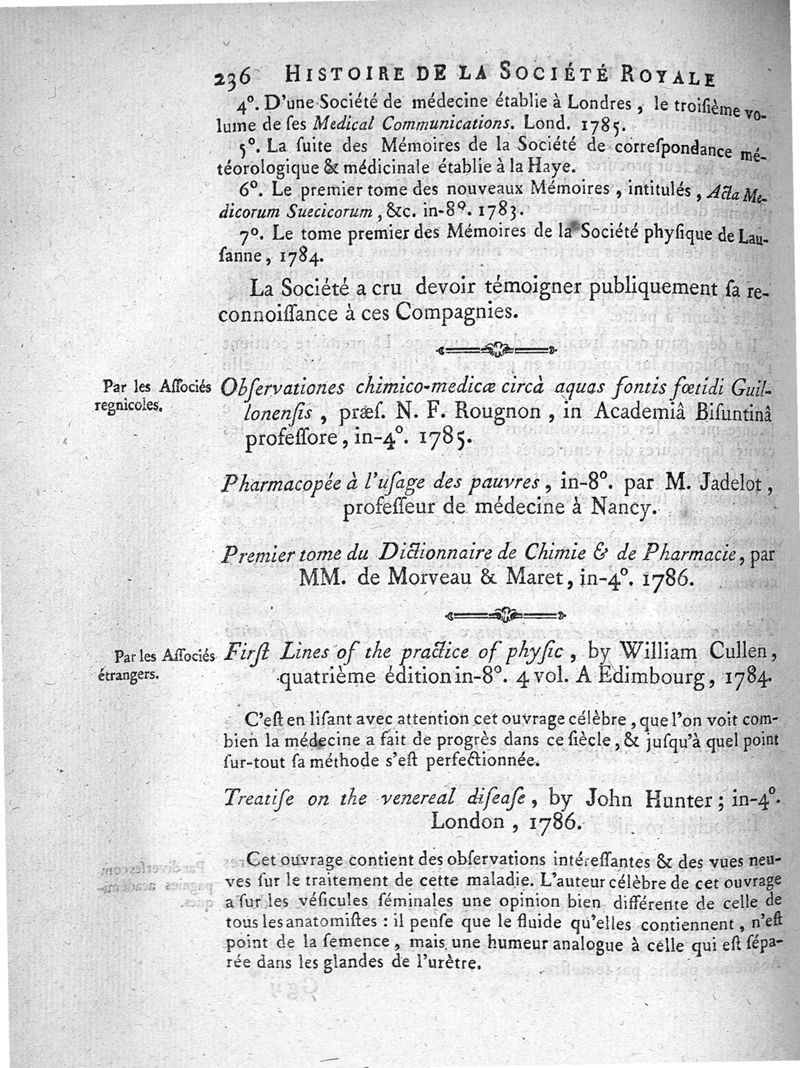 236 HISTOIRE DE LA SOCIÉTÉ ROYALE
4°. D'une Société de médecine établie à Londres, le troiſième vo-
lume de ſes Medical Communications. Lond. 1785.
5°. La ſuite des Mémoires de la Société de correſpondance mé-
téorologique & médicinale établie à la Haye.
6°. Le premier tome des nouveaux Mémoires, intitulés, Acta Me-
dicorum Suecicorum, &c. in-8°. 1783.
7°. Le tome premier des Mémoires de la Société phyſique de Lau-
ſanne, 1784.
La Société a cru devoir témoigner publiquement ſa re-
connoiſſance à ces Compagnies.
Par les Aſſociés
regnicoles.
Obſervationes chimico-medicæ circà aquas fontis fœtidi Guil-
lonenſis, præſ. N. F. Rougnon, in Academiâ Biſuntinâ
profeſſore, in-4°. 1785.
Pharmacopée à l'uſage des pauvres, in-8°. par M. Jadelot,
profeſſeur de médecine à Nancy.
Premier tome du Dictionnaire de Chimie & de Pharmacie, par
MM. de Morveau & Maret, in-4°. 1786.
Par les Aſſociés
étrangers.
Firſt Lines of the practice of phyſic, by William Cullen,
quatrième édition in-8°. 4 vol. A Edimbourg, 1784.
C'eſt en liſant avec attention cet ouvrage célèbre, que l'on voit com-
bien la médecine a fait de progrès dans ce ſiècle, & juſqu'à quel point
ſur-tout ſa méthode s'eſt perfectionnée.
Treatiſe on the venereal diſeaſe, by John Hunter; in-4°.
London, 1786.
Cet ouvrage contient des obſervations intéreſſantes & des vues neu-
ves ſur le traitement de cette maladie. L'auteur célèbre de cet ouvrage
a ſur les véſicules ſéminales une opinion bien différente de celle de
tous les anatomiſtes : il penſe que le fluide qu'elles contiennent, n'eſt
point de la ſemence, mais une humeur analogue à celle qui eſt ſépa-
rée dans les glandes de l'urètre.